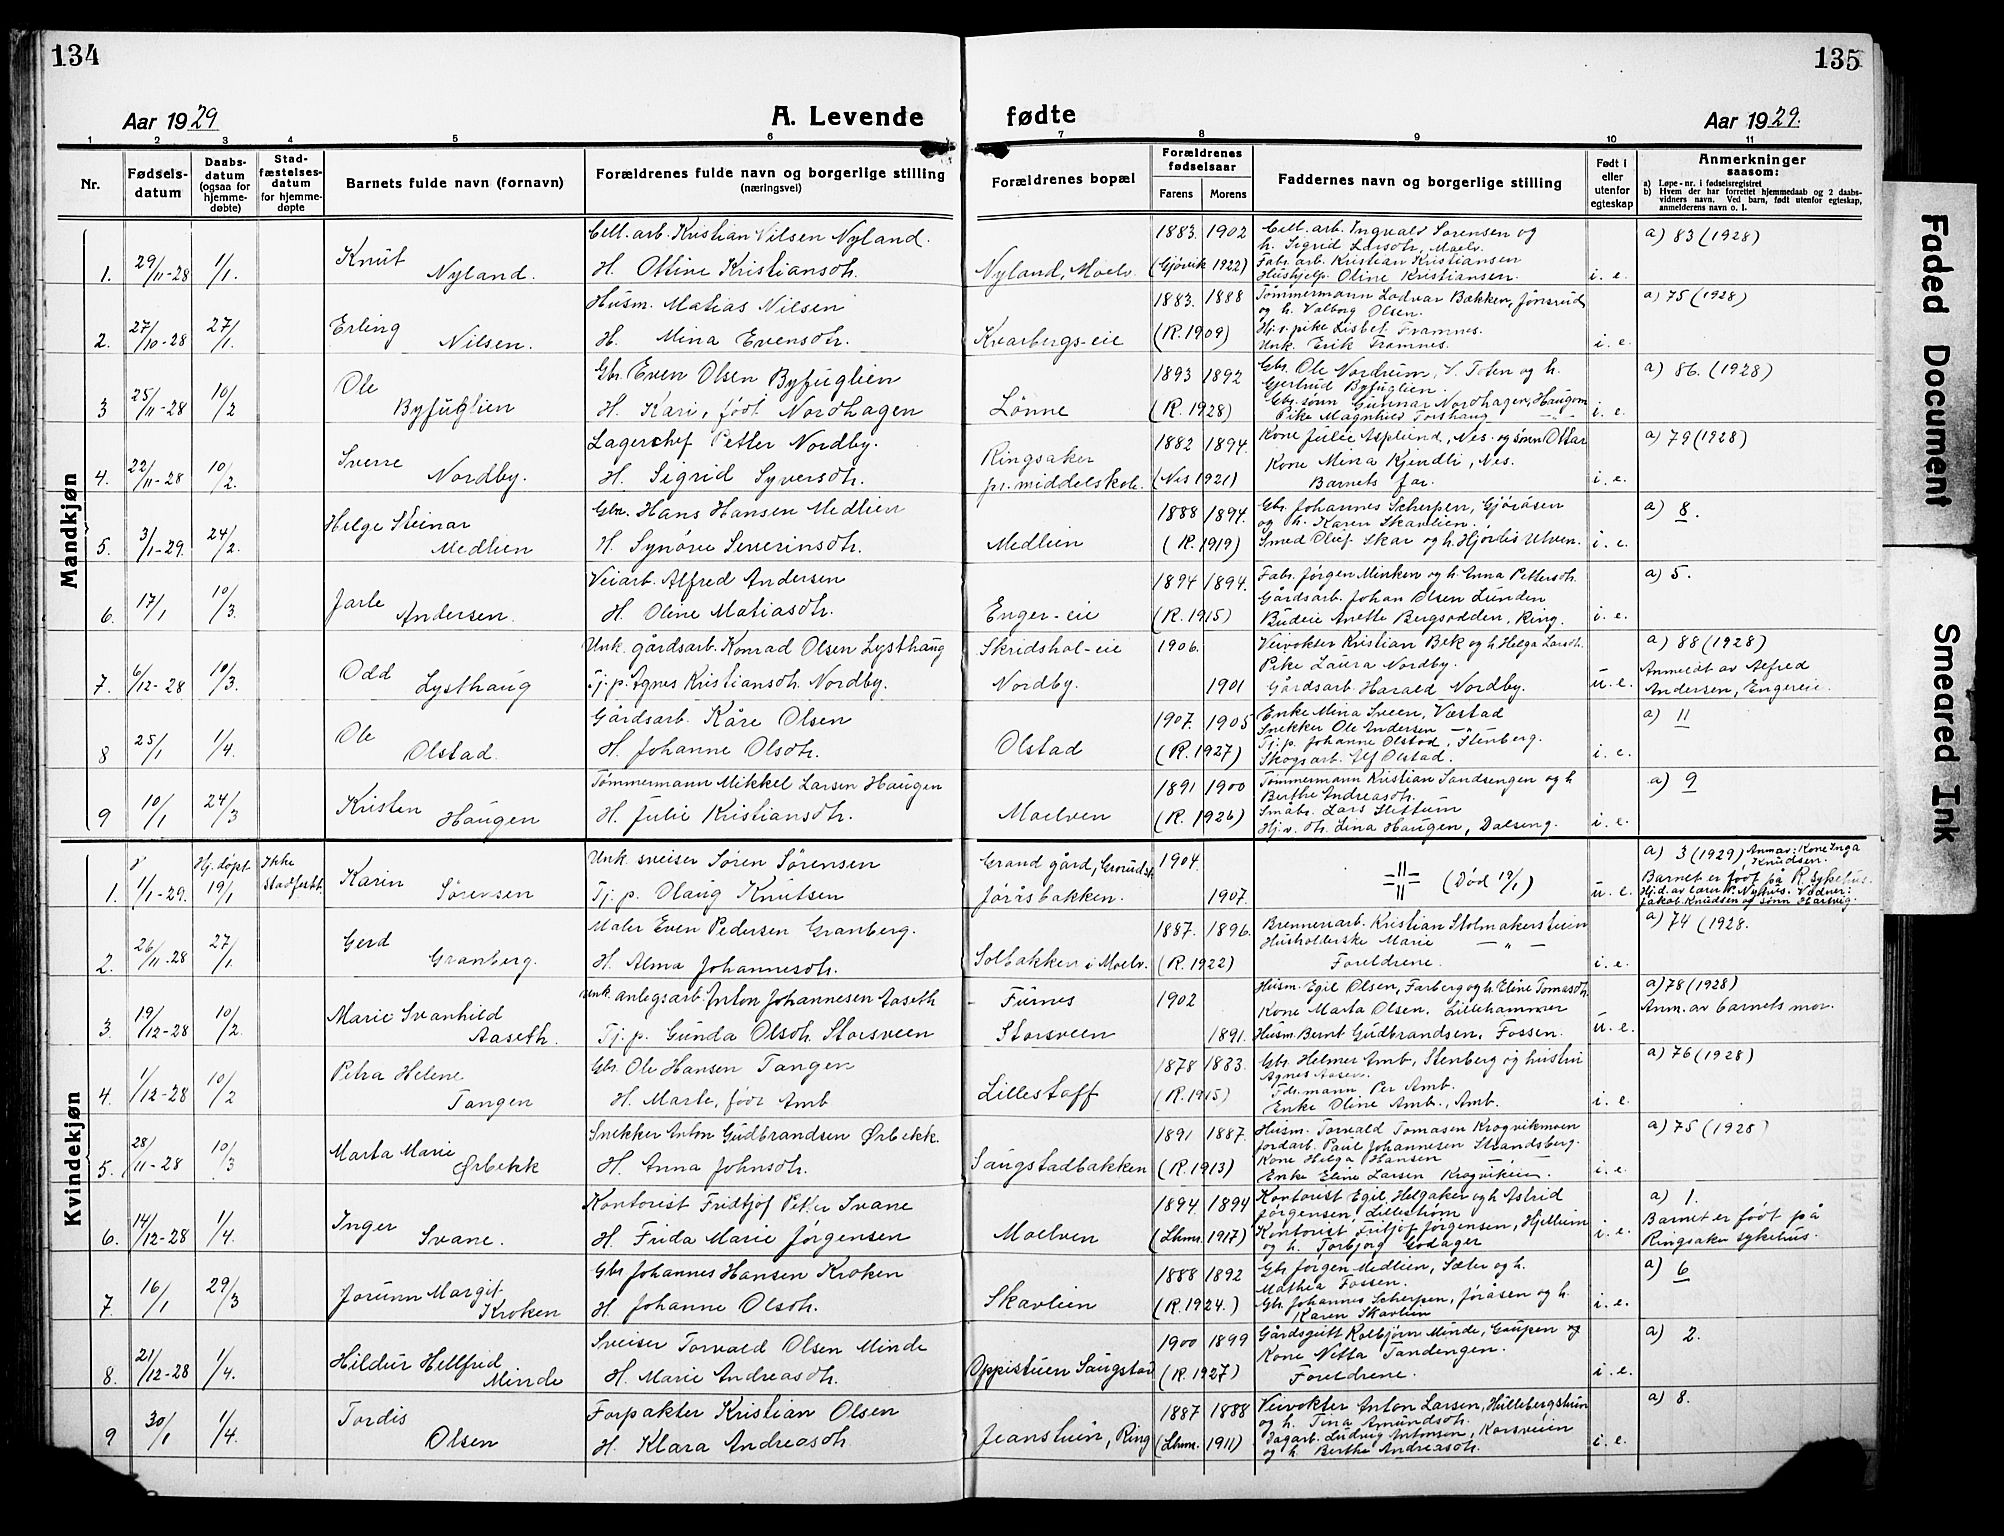 134
135
Aar 1929
A. Levende
fødte
Aar 1929.
1 2 3 4 5 6 7 8 9 10 11
Nr.
Fødsels-
datum
Daabs-
datum
(ogsaa for
hjemme-
døbte)
Stad-
fæstelses-
datum
for hjemme-
døpte
Barnets fulde navn (fornavn)
Forældrenes fulde navn og borgerlige stilling
(næringsvei)
Forældrenes bopæl
Forældrenes
fødselsaar
Farens Morens
Faddernes navn og borgerlige stilling
Født i
eller
utenfor
egteskap
Anmerkninger
saasom:
a) Løpe-nr. i fødselsregistret
b) Hvem der har forrettet hjemmedaab og 2 daabs-
vidners navn. Ved barn, født utenfor egteskap,
anmelderens navn o. l.
Mandkjøn
1. 29/11-28 1/1.
Knut
Nyland.
Cell. arb. Kristian Nilsen Nyland.
H. Ottine Kristiansdtr.
Nyland, Moelv.
1883. 1902
(Gjøvik 1922)
Cell. arb. Ingvald Sørensen og
h. Sigrid Larsdtr, Moelv.
Fab. arb. Kristian Kristiansen
Hushjelp. Oline Kristiansen.
i. e.
a) 83 (1928)
2. 27/10-28 27/1.
Erling
Nilsen.
Husm. Matias Nilsen
H. Mina Evensdtr.
Kvarbergs-eie
1883. 1888
(R. 1909)
Tømmermann Lodvar Bakken, Jønsrud
og h. Valborg Olsen.
Hj. v. pike Lisbet Framnes.
Unk. Erik Framnes.
i. e.
a) 75 (1928)
3 25/11-28 10/2
Ole
Byfuglien
Gbr. Even Olsen Byfuglien
H. Kari, født Nordhagen
Lønne
1893 1892
(R. 1928)
Gbr. Ole Nordrum, S. Toten og h.
Gjertrud Byfuglien.
Gbr. sønn Gunnar Nordhagen, Haugom
Pike Magnhild Torshaug — " —
i. e.
a) 86. (1928)
4. 22/11-28 10/2.
Sverre
Nordby.
Lagerchef Petter Nordby.
H. Sigrid Syversdtr.
Ringsaker
pr. middelskole.
1882 1894.
(Nes 1921)
Kone Julie Asplund, Nes. og sønn Ottar
Kone Mina Kjendli, Nes.
Barnets far.
i. e.
a) 79 (1928)
5. 3/1-29. 24/2.
Helge Steinar
Medlien
Gbr. Hans Hansen Medlien
H. Synøve Severinsdtr.
Medlien
1888 1894.
(R. 1919)
Gbr. Johannes Scherpen, Gjøråsen
og h. Karen Skavlien.
Smed Oluf Skar og h. Hjørdis Utven.
i. e.
a) 8.
6. 17/1 10/3.
Jarle
Andersen.
Veiarb. Alfred Andersen
H. Oline Matiasdtr.
Enger-eie
1894 1894.
(R. 1915)
Fab. Jørgen Minken og h. Anna Pettersdtr.
Gårdsarb. Johan Olsen Lunden
Budeie Anette Bergsodden, Ring.
i. e.
a) 5.
7. 6/12-28 10/3.
Odd
Lysthaug
Unk. gårdsarb. Konrad Olsen Lysthaug
Tj. p. Agnes Kristiansdtr. Nordby.
Skridshol-eie
Nordby.
1906.
1901
Veivokter Kristian Bek og h. Helga Larsdtr.
Pike Laura Nordby.
Gårdsarb. Harald Nordby.
u. e.
a) 88 (1928)
Anmeldt av Alfred
Andersen, Engereie.
8 25/1 1/4.
Ole
Olstad.
Gårdsarb. Kåre Olsen
H. Johanne Olsdtr.
Olstad
1907. 1905
(R. 1927)
Enke Mina Sveen, Væstad
Snekker Ole Andersen — " —
Tj. p. Johanne Olstad, Stenberg.
Skogsarb. Alf Olstad.
i. e.
a) 11
9 10/1 24/3
Kristen
Haugen
Tømmermann Mikkel Larsen Haugen
H. Julie Kristiansdtr.
Moelven
1891 1900
(R. 1926)
Tømmermann Kristian Sandsengen og h
Berthe Andreasdtr.
Småbr. Lars Slettum
Hj. v. dtr. Lina Haugen, Dalseng.
i. e.
a) 9
Kvindekjøn
1. 1/1-29. Hj. døpt 19/1
Ikke
Stadfestet.
Karin
Sørensen
Unk. sveiser Søren Sørensen
Tj. p. Olaug Knutsen
Grand gård, Grorudst.
Jøråsbakken.
1904
1907.
(Død 19/1)
u. e.
a) 3 (1929) Anm. av: Kone Inga
Knudsen.
Barnet er født på R. sykehus.
Hj. d. av lærer P. Nyhus. Vidner:
Jakob Knudsen og sønn Hartvig.
2. 26/11-28 27/1.
Gerd
Granberg.
Maler Even Pedersen Granberg.
H. Alma Johannesdtr.
Solbakken i Moelv.
1887. 1896.
(R. 1922)
Brenneriarb. Kristian Stolmakerstuen
Husholderske Marie — " —
Foreldrene.
i. e.
a) 74 (1928.
3. 19/12-28 10/2.
Marie Svanhild
Aaseth.
Unk. anlegsarb. Anton Johannesen Aaseth
Tj. p. Gunda Olsdtr. Storsveen
Furnes
Storsveen
1902
1891.
Husm. Egil Olsen, Farberg og h. Eline Tomasdtr.
Kone Marta Olsen, Lillehammer
Husm. Bernt Gudbrandsen, Fossen.
u. e.
a) 78 (1928)
Anm. av barnets mor.
4. 1/12-28 10/2
Petra Helene
Tangen
Gbr. Ole Hansen Tangen
H. Marte, født Amb
Lillestoff
1878 1883.
(R. 1915)
Gbr. Helmer Amb, Stenberg og hustru
Agnes Aasen.
Fdr. mann Per Amb.
Enke Oline Amb., Amb.
i. e.
a) 76 (1928)
5. 28/11-28 10/3
Marta Marie
Ørbekk
Snekker Anton Gudbrandsen Ørbekk.
H. Anna Johnsdtr.
Saugstadbakken
1891 1887.
(R. 1913)
Husm. Torvald Tomasen Krogvikmoen
Jordarb. Paul Johannesen Strandsberg.
Kone Helga Hansen — " —
Enke Eline Larsen Krogvikeien.
i. e.
a) 75 (1928)
6. 14/12-28 1/4.
Inger
Svane.
Kontorist Fridtjof Petter Svane
H. Frida Marie Jørgensen
Moelven
1894 1894
(Lhmr. 1917)
Kontorist Egil Helgaker og h. Astrid
Jørgensen, Lillestrøm
Kontorist Fritjof Jørgensen, Hjellum
og h. Torbjørg Godager
i. e.
a) 1.
Barnet er født på
Ringsaker sykehus.
7. 16/1 29/3
Jorunn Margit
Kroken
Gbr Johannes Hansen Kroken
H. Johanne Olsdtr.
Skavlien
1888 1892
(R. 1924.)
Gbr Jørgen Medlien, Sæter og h.
Mathea Fossen.
Gbr. Johannes Scherpen, Jøråsen og h.
Karen Skavlien
i. e.
a) 6
8. 21/12-28 1/4.
Hildur Hellfred
Minde
Sveiser Torvald Olsen Minde
H. Marie Andreasdtr.
Oppistuen Saugstad
1900 1899
(R. 1927)
Gårdsgutt Kolbjørn Minde, Gaupen og
Kone Netta Tandengen.
Foreldrene.
i. e.
a) 2.
9 30/1 1/4.
Tordis
Olsen
Forpakter Kristian Olsen
H. Klara Andreasdtr.
Jeanstuen, Ring
1887 1888
(Lhmr. 1911)
Veivokter Anton Larsen, Hullebergstuen
og h. Tina Amundsdtr.
Dagarb. Ludvig Antonsen, Korsveien
og h. Berthe Andreasdtr.
i. e.
a) 8.
Faded Document
Smeared Ink